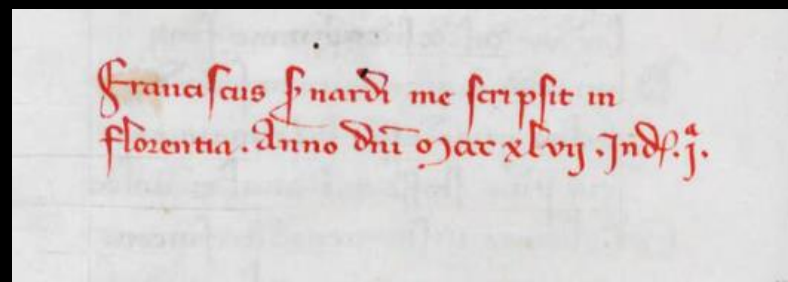 Franciſcus ſ nardi me ſcripſit in
florentia . Anno dn̄i Mccc xlvij . Ind . jᵃ.